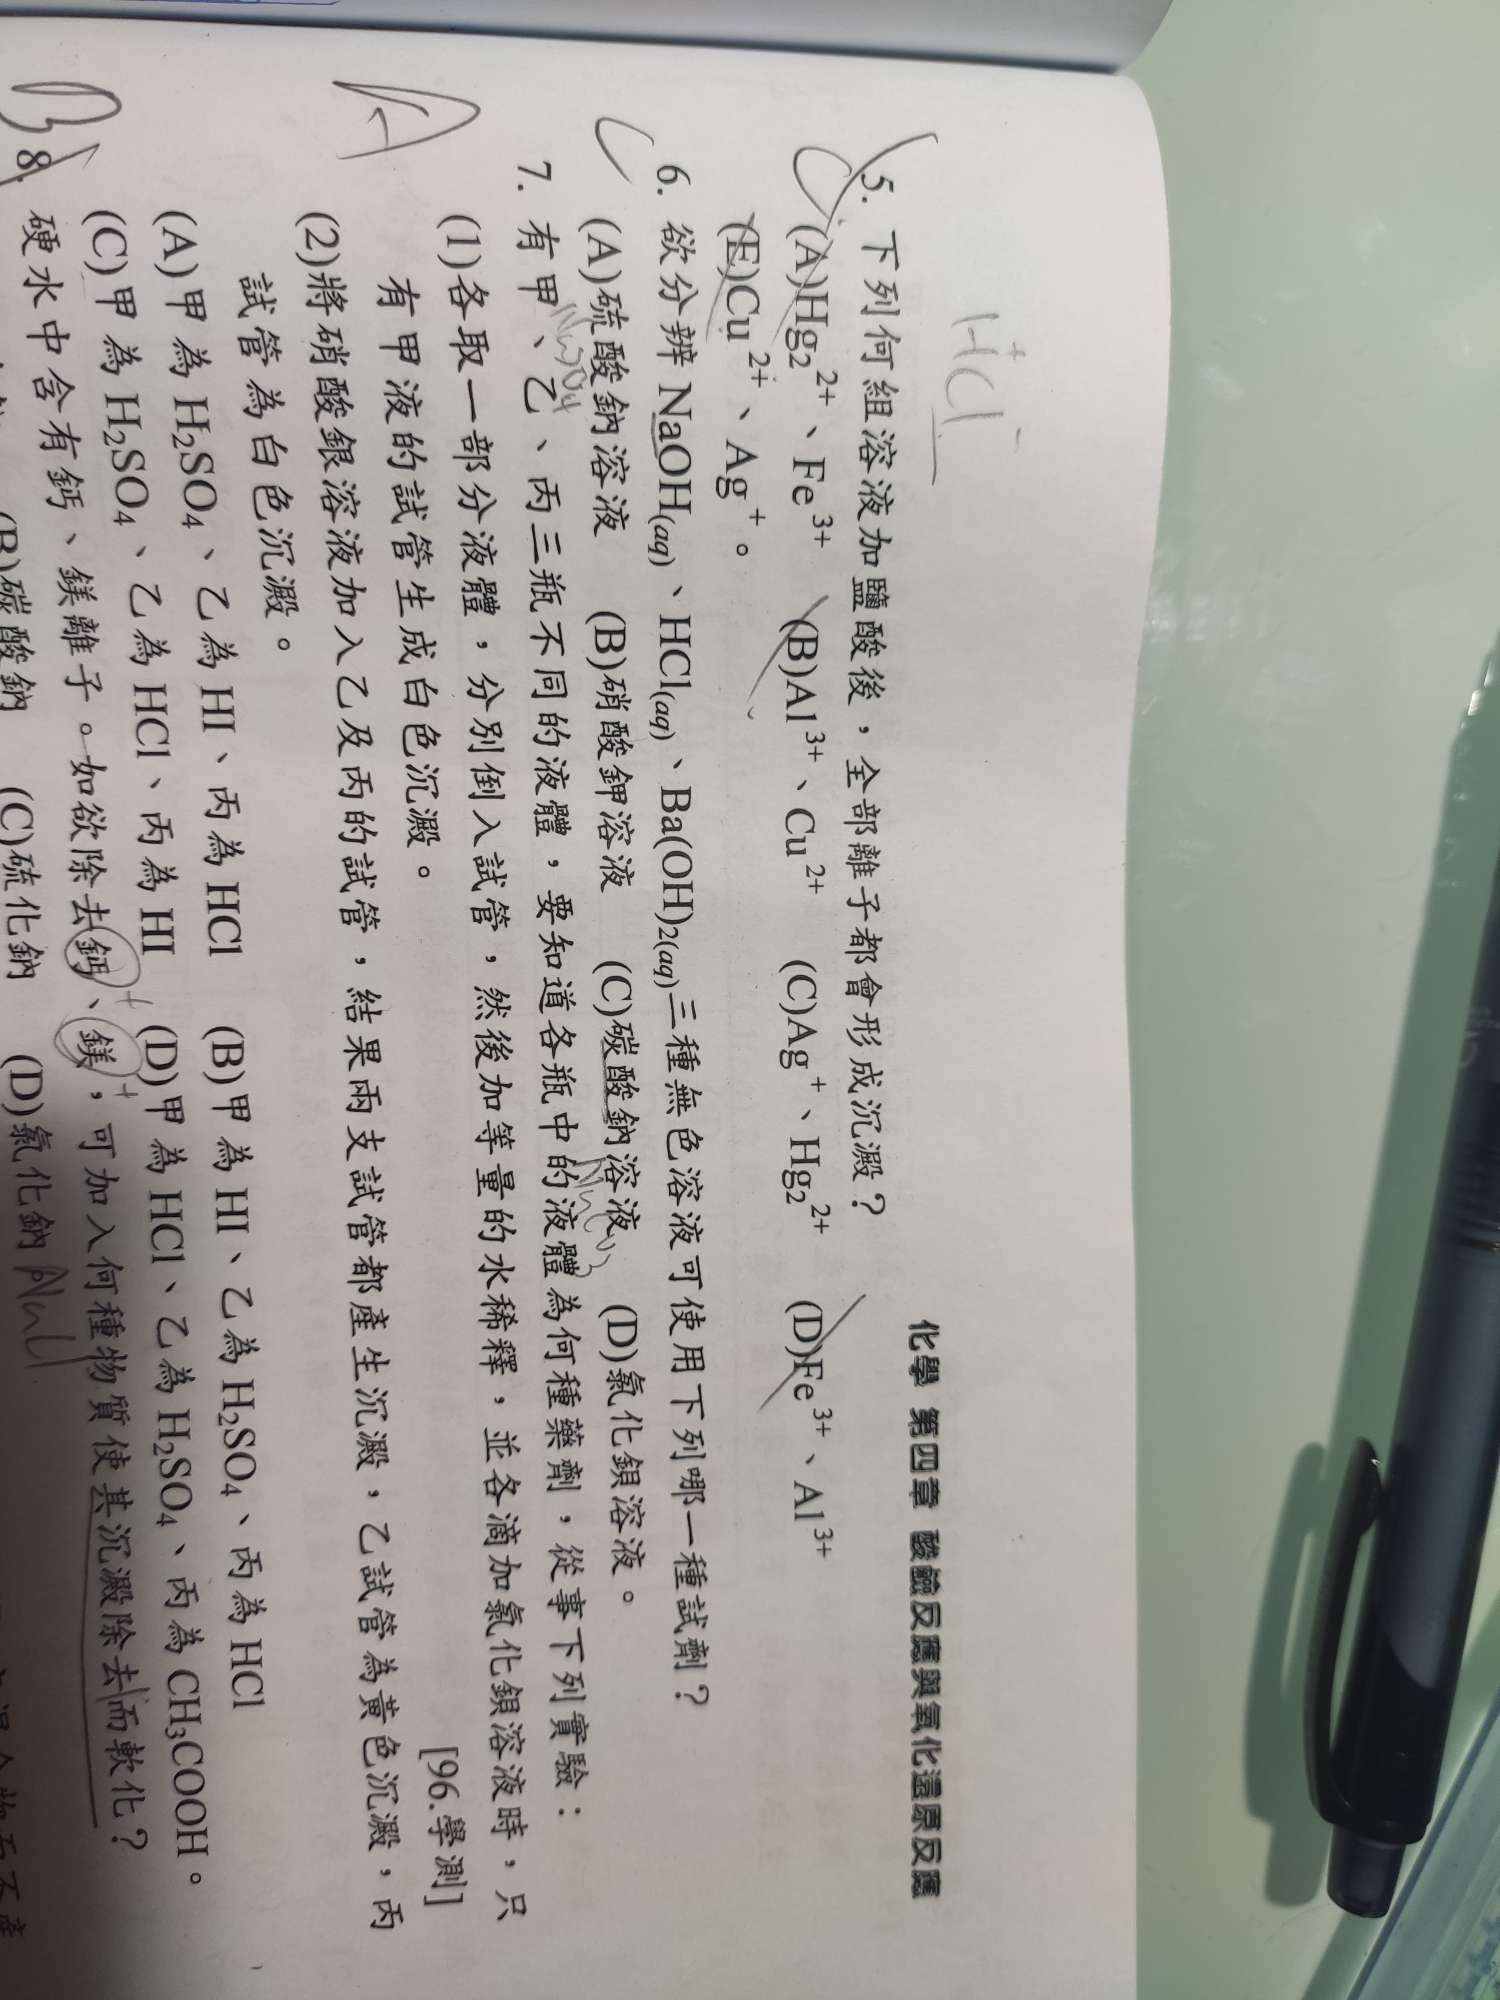 化學 第四章 酸鹼反應與氧化還原反應
H⁺Cl⁻
C 5. 下列何組溶液加鹽酸後，全部離子都會形成沉澱？
(A)Hg₂²⁺、Fe³⁺ (B)Al³⁺、Cu²⁺ (C)Ag⁺、Hg₂²⁺ (D)Fe³⁺、Al³⁺
(E)Cu²⁺、Ag⁺。
C 6. 欲分辨 NaOH(aq)、HCl(aq)、Ba(OH)₂(aq)三種無色溶液可使用下列哪一種試劑？
(A)硫酸鈉溶液 (B)硝酸鉀溶液 (C)碳酸鈉溶液 (D)氯化鋇溶液。
A 7. 有甲、乙、丙三瓶不同的液體，要知道各瓶中的液體為何種藥劑，從事下列實驗：
(1)各取一部分液體，分別倒入試管，然後加等量的水稀釋，並各滴加氯化鋇溶液時，只
有甲液的試管生成白色沉澱。 [96.學測]
(2)將硝酸銀溶液加入乙及丙的試管，結果兩支試管都產生沉澱，乙試管為黃色沉澱，丙
試管為白色沉澱。
(A)甲為 H₂SO₄、乙為 HI、丙為 HCl (B)甲為 HI、乙為 H₂SO₄、丙為 HCl
(C)甲為 H₂SO₄、乙為 HCl、丙為 HI (D)甲為 HCl、乙為 H₂SO₄、丙為 CH₃COOH。
B 8. 硬水中含有鈣、鎂離子。如欲除去鈣、鎂，可加入何種物質使其沉澱除去而軟化？
(B)碳酸鈉 (C)硫化鈉 (D)氯化鈉